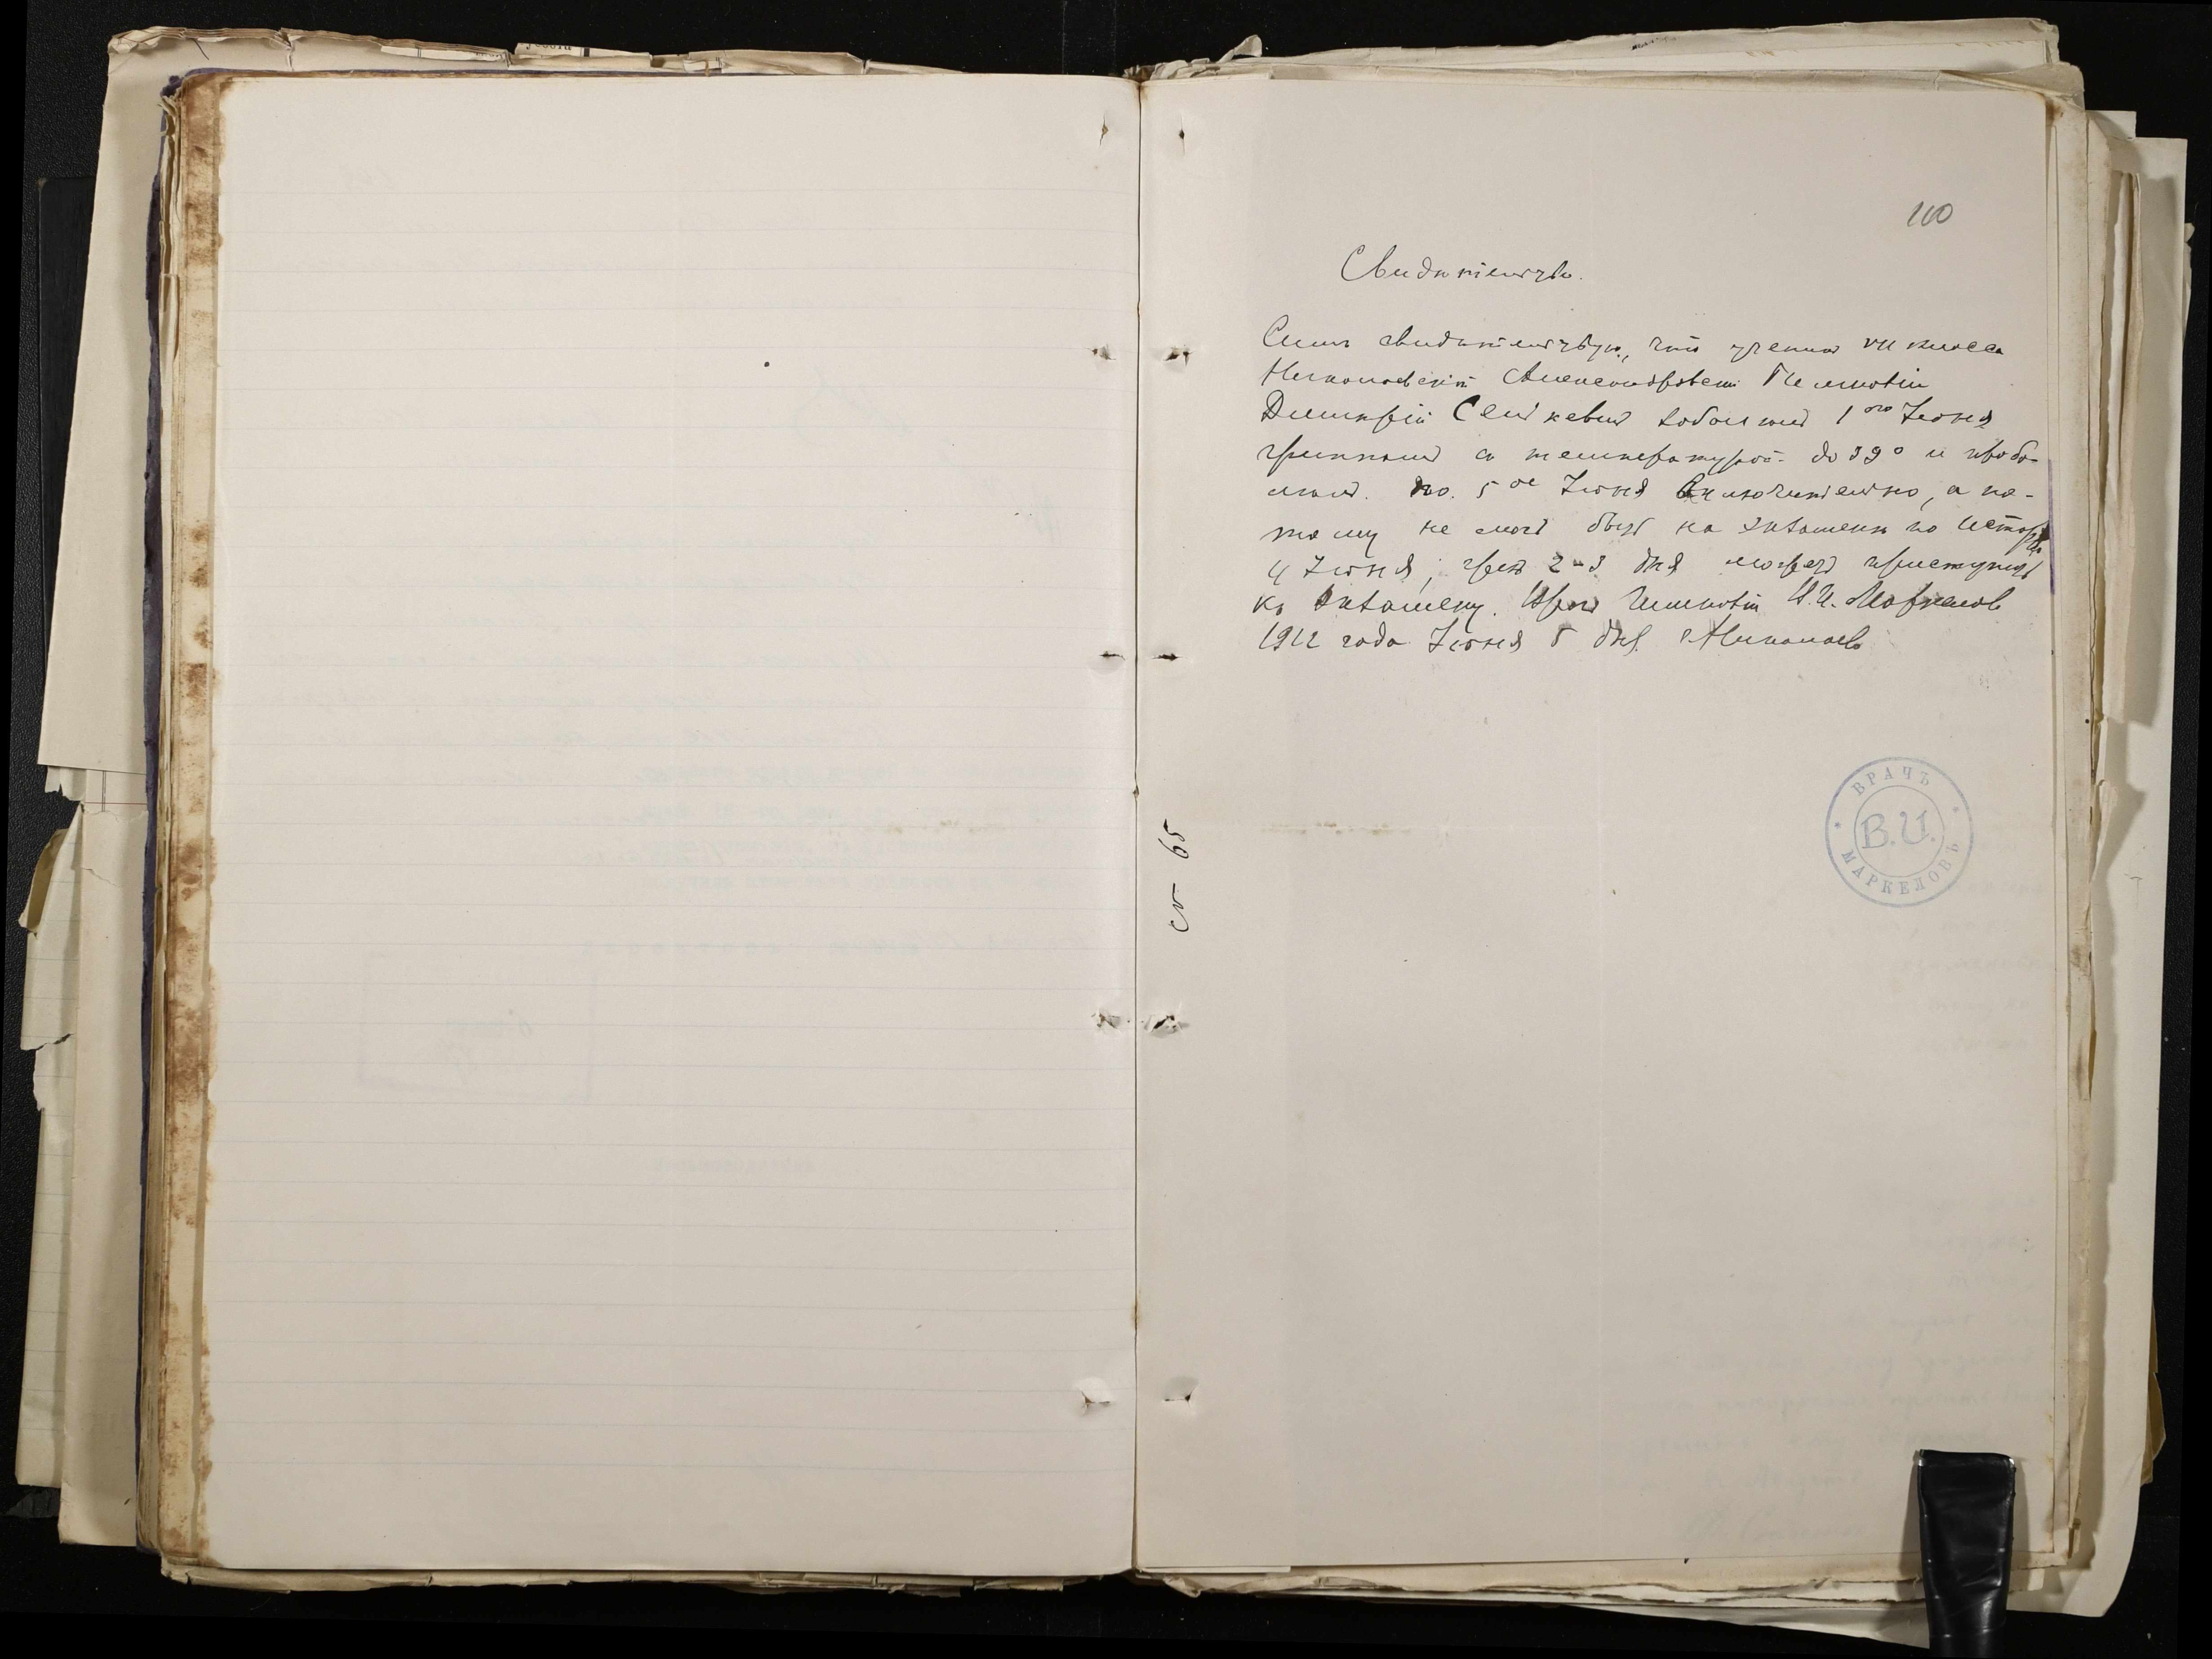 110
Свидетельство.
Симъ свидетельствую, что ученикъ VII класса
Николаевской Александровской Гимназіи
Димитрій Сенкевич заболелъ 1ого Іюня
гриппомъ съ температурой до 39° и проболелъ
до 5ое Іюня включительно, а по-
тому не могъ быть на экзамене по исторіи
4 Іюня; чрезъ 2-3 дня можетъ приступить
къ экзамену. Врачъ Гимназіи В.И. Маркеловъ
1912 года Іюня 5 дня г. Николаевъ
ВРАЧЪ
В.И.
МАРКЕЛОВЪ
65